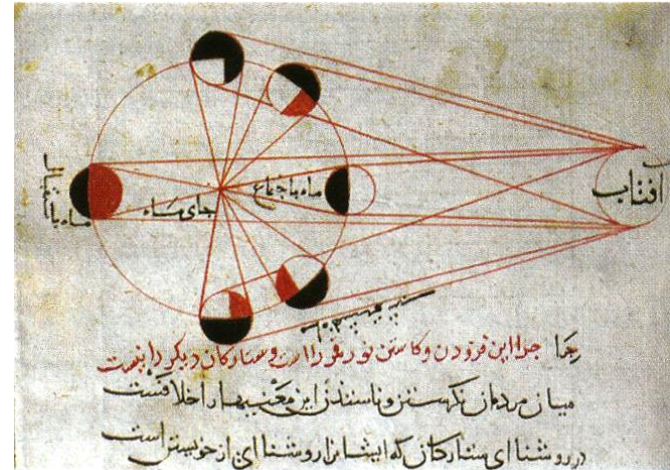 آفتاب
ماه باجتماع
جای ماه
ماه باستقبال
چرا این فزودن و کاستن نور قمر را است و ستارکان دیکر را نیست
میان مردمان نکرستن و ناسندن این معنیها را خلافست
در روشنا ای ستارکان که ایشانرا روشنا ای از خویستن است